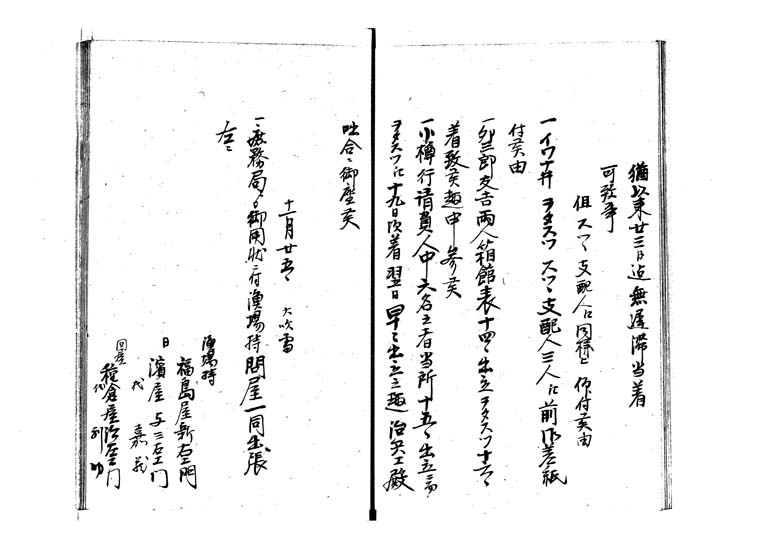 猶以来廿三日迄無遅滞当着
可致事
但スツヽ支配人江同様被仰付候由
一イワナ井ヲタスツスツヽ支配人三人江前同差紙
付候由
一卯三郎友吉両人箱館表十四日出立ヲタスツ十六日
着致候趣申参候
一小樽行請負人中六名之者当所十五日出立
ヲタスツ江十九日夜着翌日早々出立之趣治兵衛殿
吐合ニ御座候
十一月廿五日 大吹雪
一庶務局ゟ御用状ニ付漁場持問屋一同出張
左ニ
漁場持
福島屋新右衛門
同 濱屋与三右衛門
代 嘉蔵
問屋
熊倉屋治左衛門
代